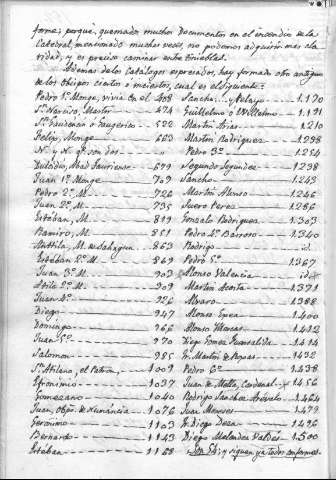 forme; porque, quemados muchos Documentos en el incendio de la
Catedral, mencionado muchas veces, no podemos adquirir mas cla
ridad, y es preciso caminar entre tinieblas.
Ademas de los Catálogos expresados, hay formado otro antiguo
de los obispos ciertos è inciertos, cual es el siguiente:
Pedro 1º Monge, vivia en el 408 Sancho y Pelayo 1.170
Sn. Narciso, Martir 474 Guillelmo ó Willelmo 1.191
522 Martin Arias 1.210
Felix, Monge 663 Martin Rodriguez 1.238
N. y N. q. son dos Pedro 3º 1.254
679 Segundo Segundez 1.238
Juan 1º Monge 709 Sancho 1.243
Pedro 2º M. 726 Martin Alonso 1.246
Juan 2º M. 735 Suero Perez 1.286
Estéban, M. 819 Gonzalo Rodriguez 1.303
Ramiro, M. 851 Pedro 4º Barroso 1.340
Attila, M. de Sahagun 863 Rodrigo id.
Estéban 2º M. 869 Pedro 5º 1.367
Juan 3º M. 903 Alonso Valencia id.
Atilo 2º M. 909 Martin Acosta 1.371
Juan 4º 926 Alvaro 1.388
Diego 947 Alonso Egea 1.400
Domingo 966 Alonso Illescas 1.412
Juan 5º 970 Diego Gomez Fuensalida 1.414
Salomon 985 Fr. Martin de Rojas 1.432
Sn. Atilano, el Patron 1009 Pedro 6º 1.438
Efronimio 1037 Juan de Mella, Cardenal 1.456
Gomezano 1040 Rodrigo Sanchez Arévalo 1.464
Juan, Obpo. de Numancia 1076 Juan Meneses 1.479
Gerónimo 1103 Fr. Diego Deza 1.496
Bernardo 1143 Diego Melendez Valdes 1.500
Estéban 1168 Son 63; y siguen ya todos conformes.